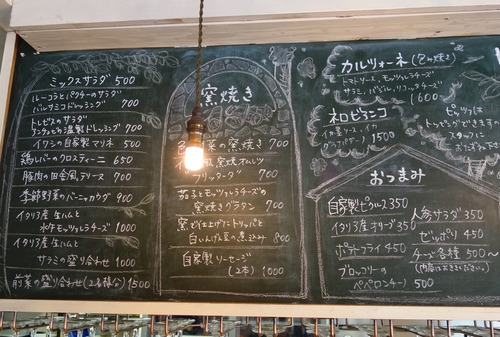 ミックスサラダ 500
ルーコラとパクチーのサラダ
バルサミコドレッシング 700
トレビスのサラダ
アンチョビ温製ドレッシング 700
イワシの自家製マリネ 500
鶏レバーのクロスティーニ 650
豚肉の田舎風テリーヌ 700
季節野菜のバーニャカウダ 900
イタリア産生ハムと
水牛モッツァレラチーズ 1000
イタリア産生ハムと
サラミの盛り合わせ 1000
前菜の盛り合わせ(2名様分) 1500
窯焼き
野菜の窯焼き 700
風窯焼オムレツ
フリッタータ 700
茄子とモッツァレラチーズの
窯焼きグラタン 700
窯で仕上げたトリッパと
白いんげん豆の煮込み 800
自家製ソーセージ
(2本) 1000
カルツォーネ(包み焼き)
トマトソース、モッツァレラチーズ
サラミ、バジル、リコッタチーズ
1600
ネロビアンコ
1500
ピッツァは
トッピングができます
スタッフに
おたずね下
おつまみ
自家製ピクルス 350
イタリア産オリーブ 350
ポテトフライ 450
ブロッコリーの
ペペロンチーノ 500
人参サラダ 350
ゼッポリ 450
チーズ各種 500〜
(内容はおききください。)